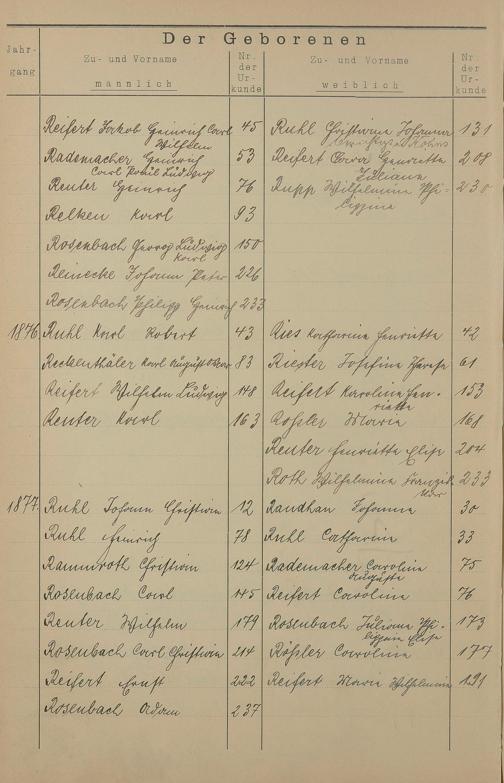 Der Geborenen
Jahr-
gang
Zu- und Vorname
männlich
Nr.
der
Ur-
kunde
Zu- und Vorname
weiblich
Nr.
der
Ur-
kunde
Reifert Jakob Heinrich Carl 45 Ruhl Christiana Johanna 131
Wilhelm
Rademacher Heinrich 53 Reifert Clara Henriette 208
Carl Robert Ludwig Juliana
Reuter Heinrich 76 Rupp Wilhelmine Phi- 230
lippine
Relken Karl 93
Rosenbach Georg Ludwig 150
Karl
Reinecke Johann Peter 226
Rosenbach Philipp Heinrich 233
1876. Ruhl Karl Robert 43 Ries Katharina Henriette 42
Reckenthäler Karl August Oskar 83 Riester Josefine Therese 61
Reifert Wilhelm Ludwig 148 Reifert Karoline Hen- 153
riette
Reuter Karl 163 Rossler Maria 168
Reuter Henriette Elise 204
Roth Wilhelmine Franzis 233
1877. Ruhl Johann Christian 12 Randhan Johanna 30
Ruhl Heinrich 78 Ruhl Catharina 33
Rammroth Christian 124 Rademacher Carolina 75
Auguste
Rosenbach Carl 145 Reifert Carolina 76
Reuter Wilhelm 179 Rosenbach Juliana Phi- 173
lippine Elise
Rosenbach Carl Christian 214 Rößler Carolina 177
Reifert Ernst 222 Reifert Maria Wilhelmine 191
Rosenbach Adam 237